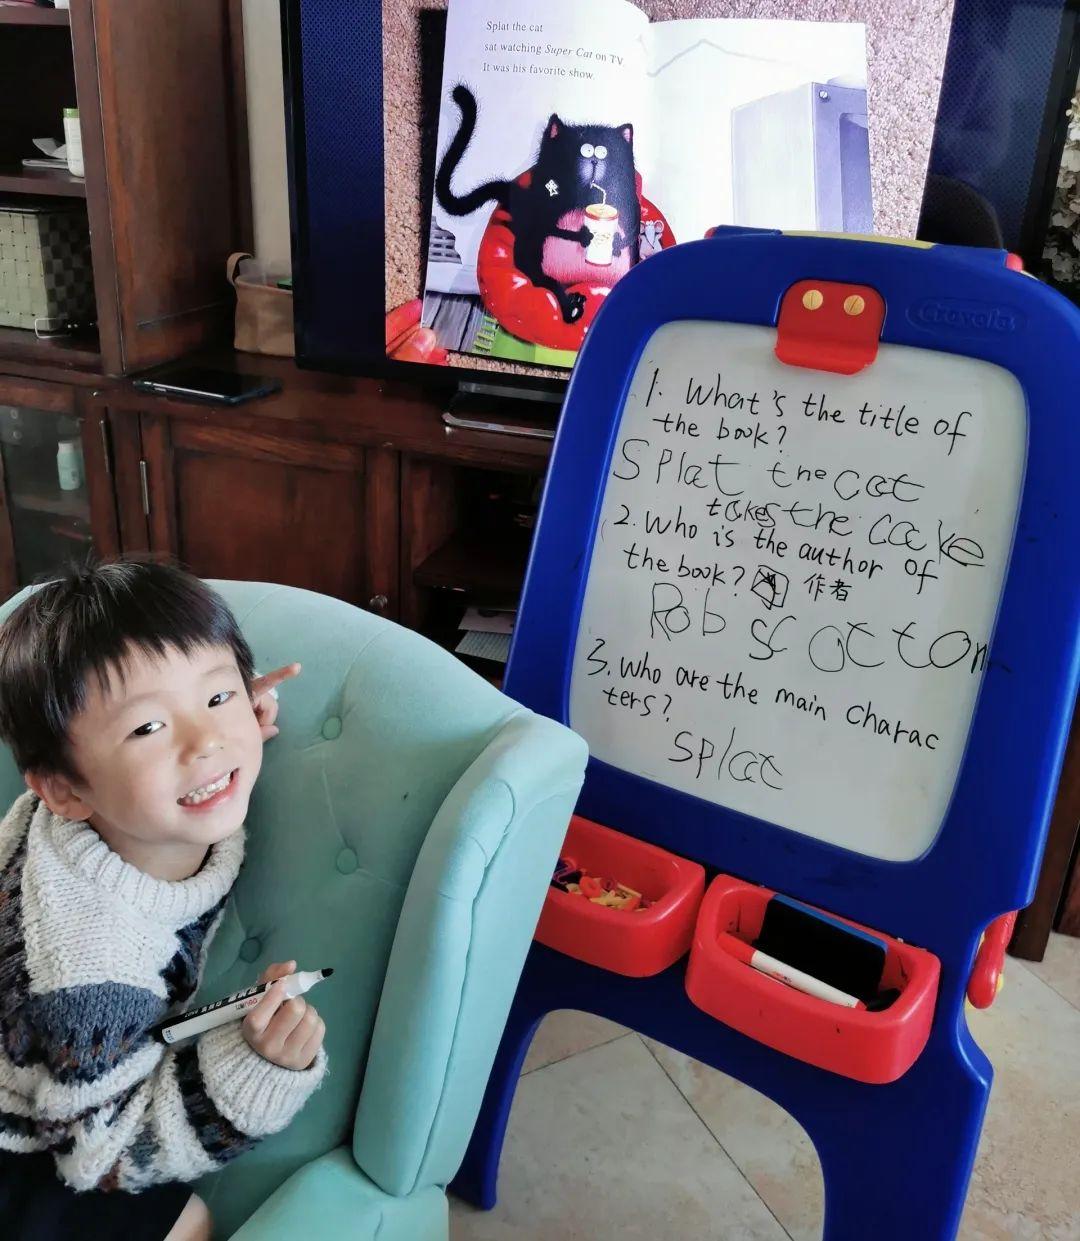 Splat the cat
sat watching Super Cat on TV.
It was his favorite show.
Crayola
1. What's the title of
the book?
Splat the cat
takes the cake
2. Who is the author of
the book? 作者
Rob Scotton
3. Who are the main charac
ters?
Splat